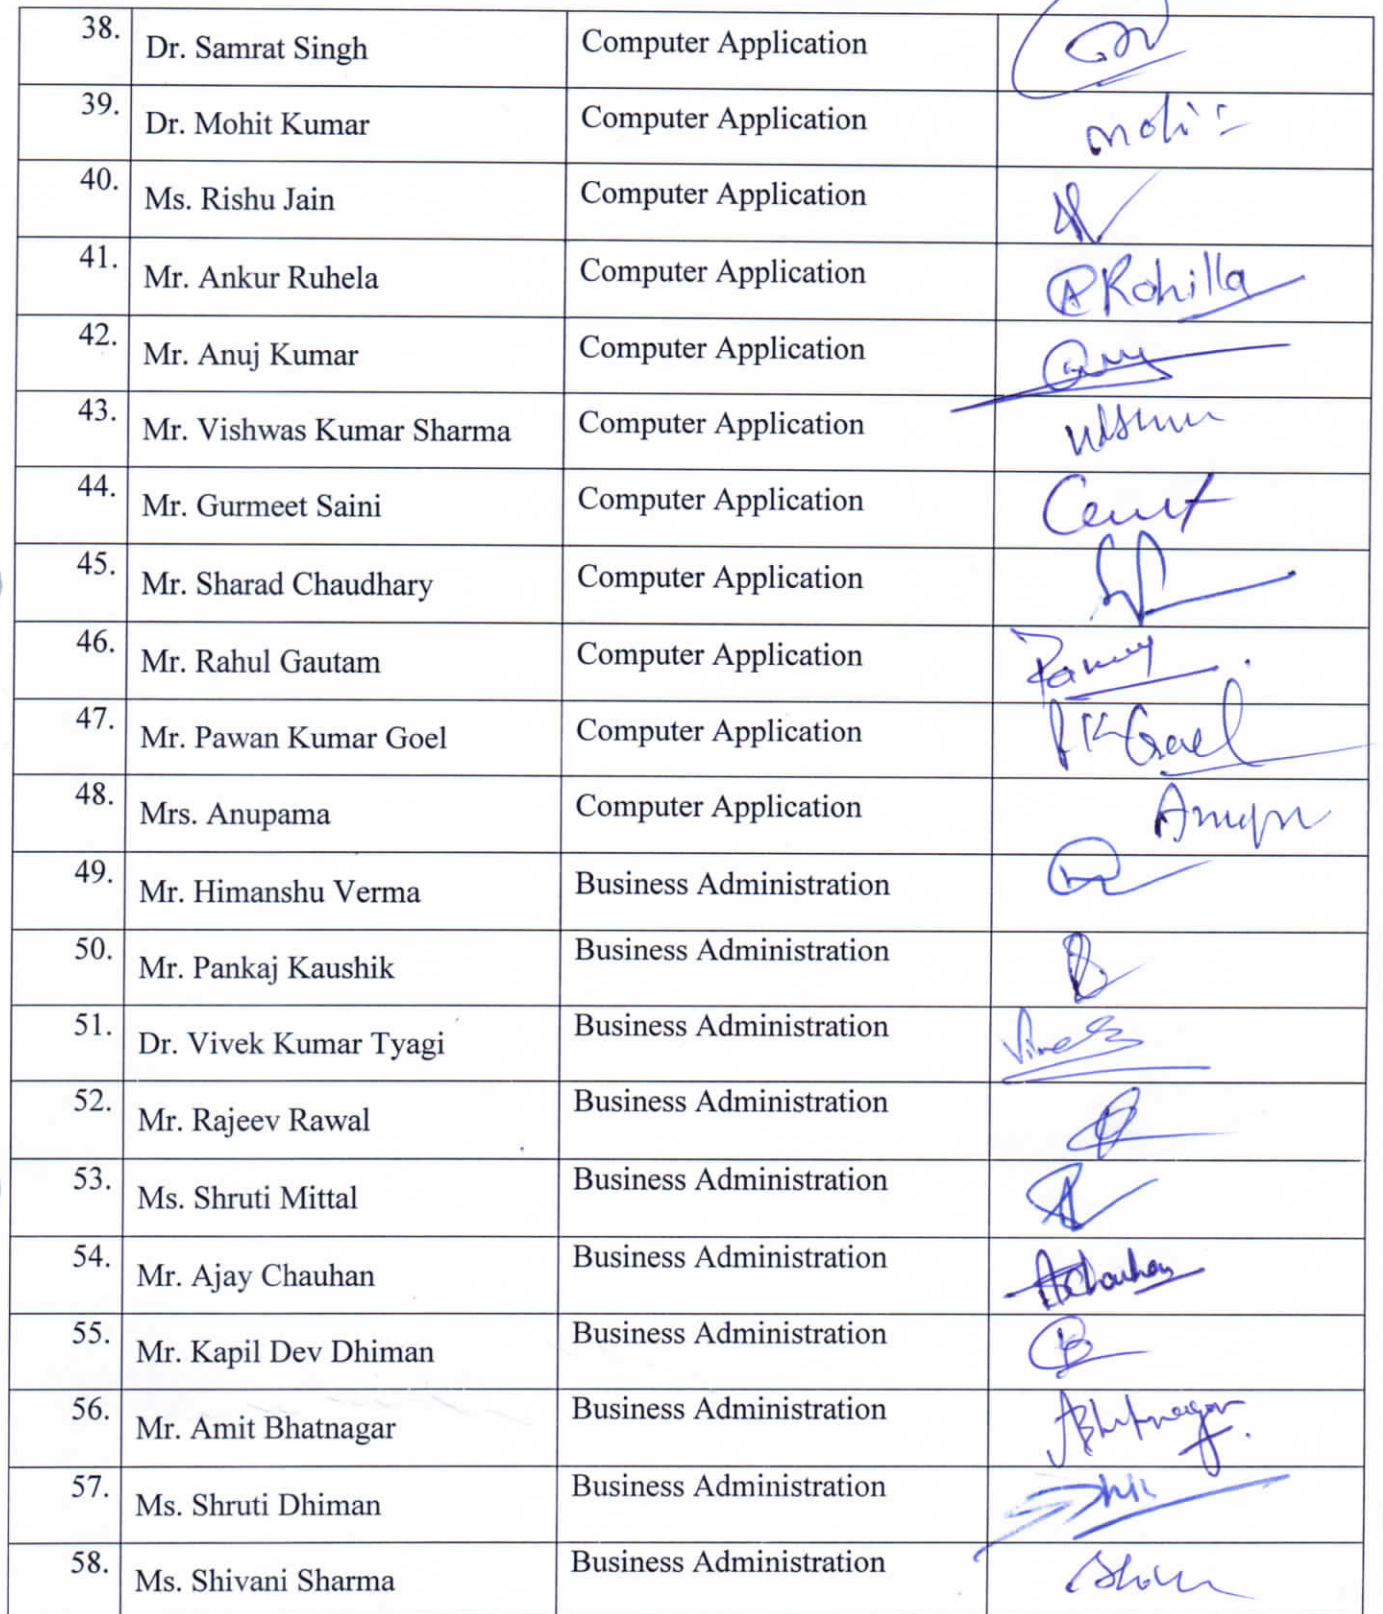 38. Dr. Samrat Singh Computer Application
39. Dr. Mohit Kumar Computer Application
40. Ms. Rishu Jain Computer Application
41. Mr. Ankur Ruhela Computer Application Rohilla
42. Mr. Anuj Kumar Computer Application
43. Mr. Vishwas Kumar Sharma Computer Application
44. Mr. Gurmeet Saini Computer Application
45. Mr. Sharad Chaudhary Computer Application
46. Mr. Rahul Gautam Computer Application
47. Mr. Pawan Kumar Goel Computer Application PK Goel
48. Mrs. Anupama Computer Application
49. Mr. Himanshu Verma Business Administration
50. Mr. Pankaj Kaushik Business Administration
51. Dr. Vivek Kumar Tyagi Business Administration
52. Mr. Rajeev Rawal Business Administration
53. Ms. Shruti Mittal Business Administration
54. Mr. Ajay Chauhan Business Administration AChauhan
55. Mr. Kapil Dev Dhiman Business Administration
56. Mr. Amit Bhatnagar Business Administration ABhatnagar
57. Ms. Shruti Dhiman Business Administration
58. Ms. Shivani Sharma Business Administration